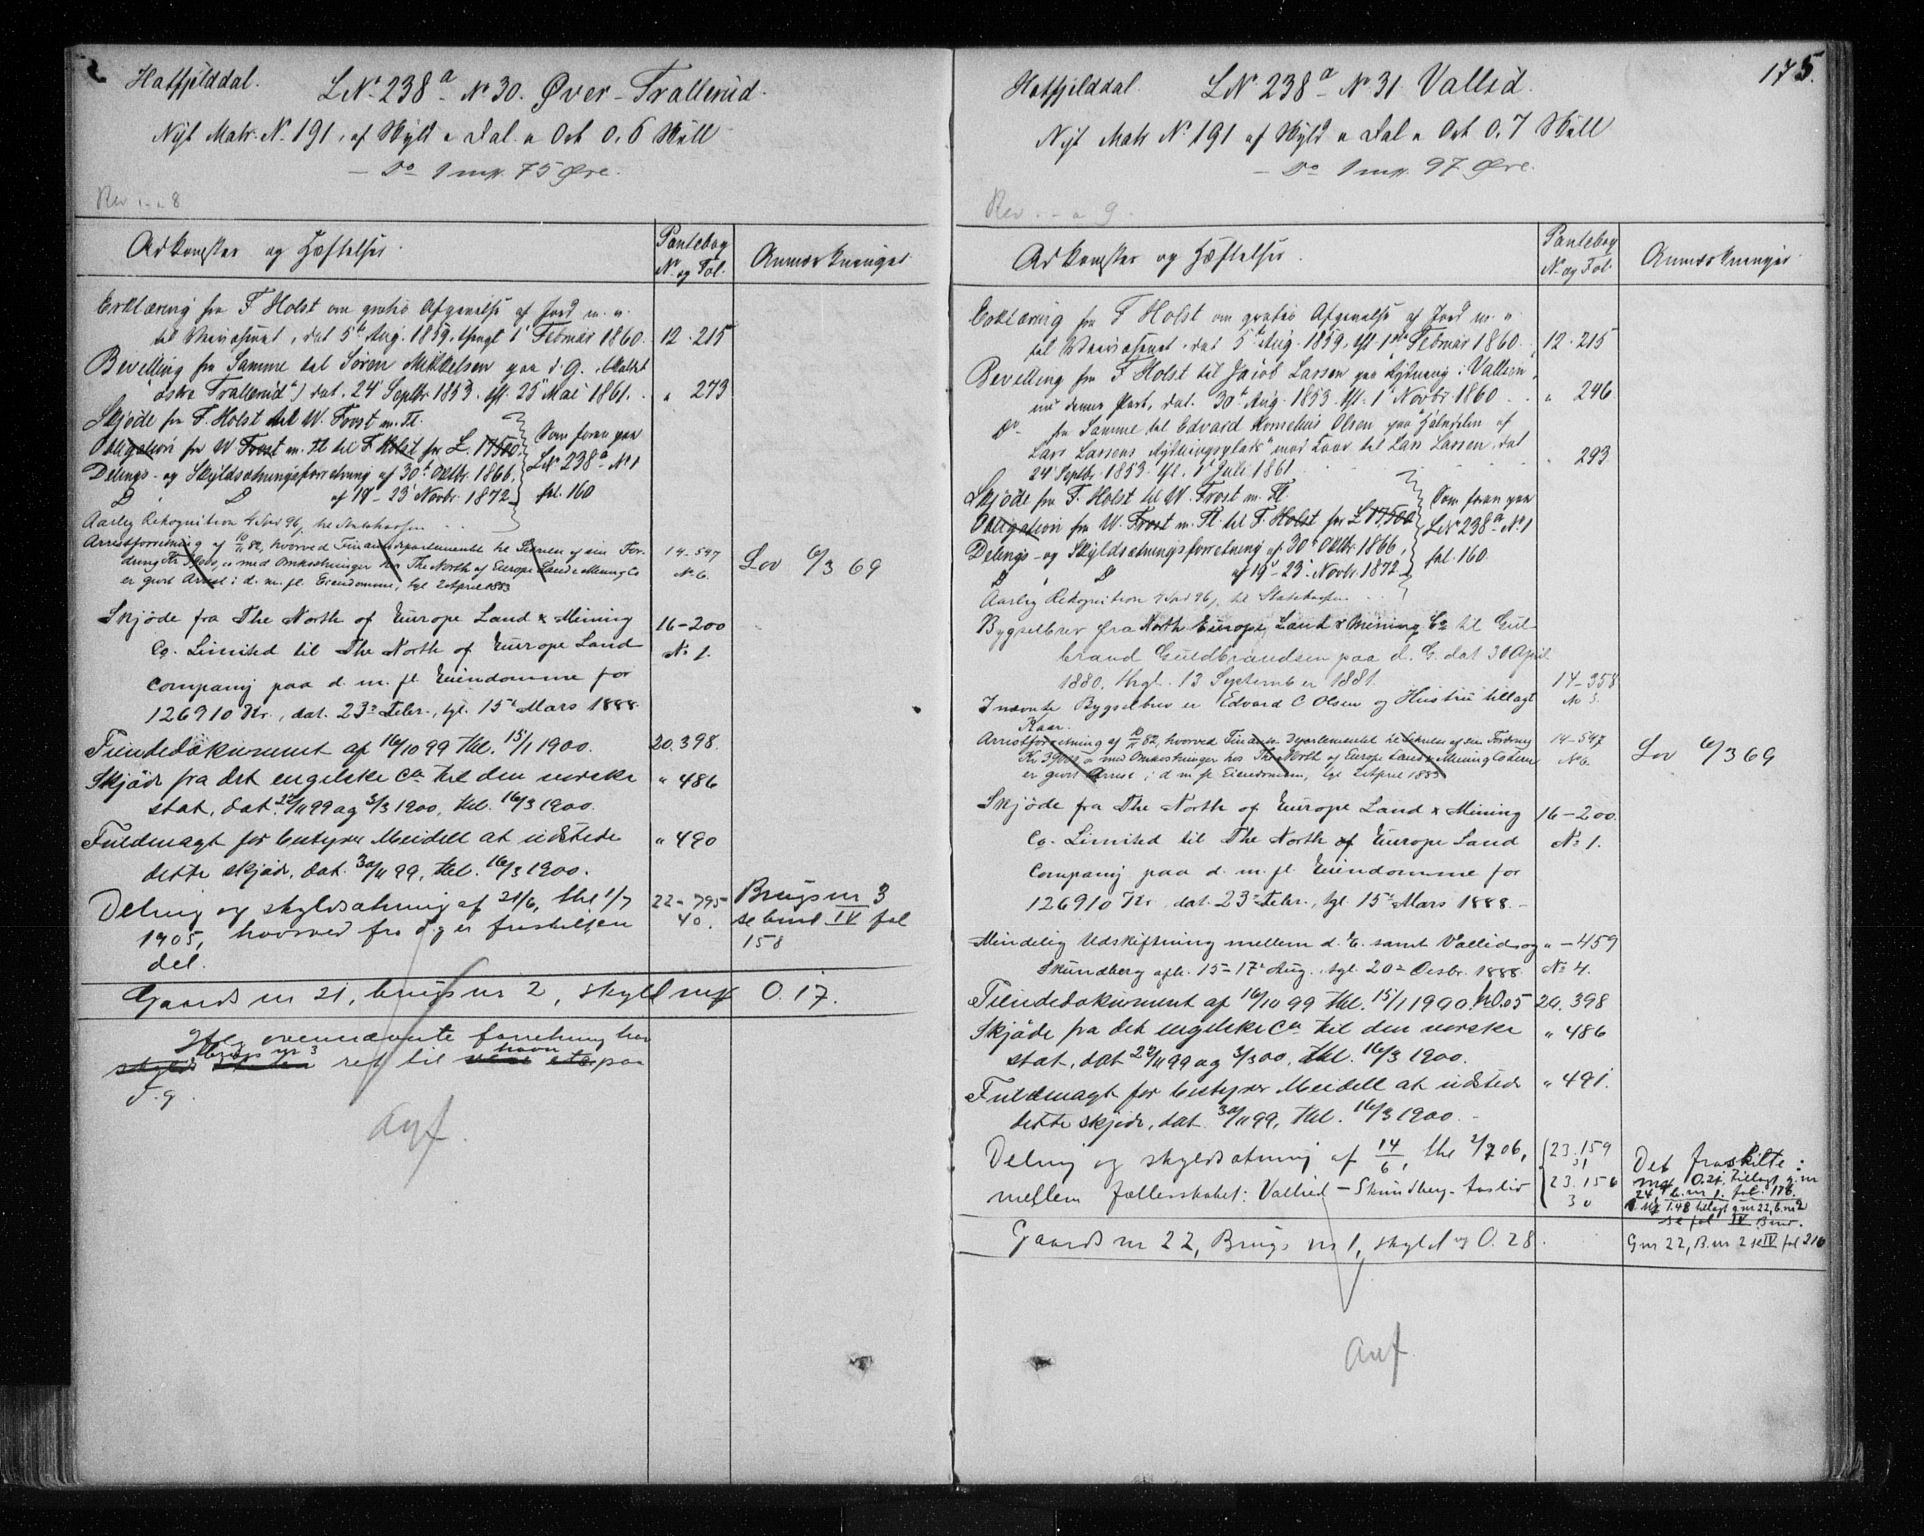 Hatfjelddal. LNº 238a Nº 30. Øver-Trallerud.
Nyt Matr. Nº 191, af Skyld " Dal. " Ort 0,6 Skill
- Do 1 mk. 75 Øre.
Rev. 8
Adkomster og Hæftelser.
Pantebog
Nº og Fol.
Anmærkninger
Erklæring fra F Holst om gratis Afgivelse af Jord m. v.
til Veivæsenet, dat 5te Aug. 1859, thingl 1 Februar 1860. 12. 215
Bevilling fra Samme til Sören Mikkelsen paa d. G. (kaldet
østre Trallerud) dat. 24 Septbr 1853. tgl. 25 Mai 1861. " 273
Skjøde fra F. Holst til W. Frost m. Fl.
Obligation fra W Frost m. Fl til F Holst for £. 17500. Som foran paa
Delings- og Skyldsætningsforretning af 30te Oktbr. 1866, LNº 238a Nº 1
D D af 19-23 Novbr. 1872 fol. 160
Aarlig Rekognition 4 Spd 96 til Statskassen
Arrestforretning af 10/11 82, hvorved Finansdepartementet til Sikkerhed af sin For- 14-547
dring Kr. med Omkostninger hos The North of Europe Land & Mining Co Nº 6. Lov 6/3 69
er gjort Arrest i d. m. fl. Eiendomme, tgl 2 April 1883
Skjøde fra The North of Europe Land & Mining 16-200
Co. Limited til The North of Europe Land Nº 1.
Company paa d. m. fl. Eiendomme for
126910 Kr., dat. 23de Febr., tgl. 15de Mars 1888.
Tiendedokument af 16/10 99 thl. 15/1 1900. 20. 398.
Skjöde fra det engelske Co til den norske " 486
stat, dat. 22/11 99 og 3/3 1900, thl. 16/3 1900.
Fuldmagt for bestyrer Meidell at udstede " 490
dette skjöde, dat. 30/11 99, thl. 16/3 1900.
Deling og skyldsætning af 21/6, thl 1/7 22-795 Brugs nr 3
1905, hvorved fra d. g. er fraskilt en 40. se bind IV fol
del. 158
Gaards nr 21, brugs nr 2, skyld mk 0.17.
Iflg ovennævnte forretning har
brugs nr 3 havn
ret til paa
d. g.
Auf.
175.
Hatfjelddal. LNº 238a Nº 31 Vallid.
Nyt Matr Nº 191 af Skyld " Dal " Ort 0,7 Skill
- Do 1 mk. 97 Øre.
Rev. 9.
Adkomster og Hæftelser.
Pantebog
Nº og Fol.
Anmærkninger
Erklæring fra F Holst om gratis Afgivelse af Jord m. v
til Veivæsenet, dat 5te Aug. 1859, tgl. 1ste Februar 1860. 12-215
Bevilling fra F Holst til Jacob Larsen paa Rydning i Vallern,
nu denne Part, dat. 30te Aug. 1853 tgl. 1 Novbr 1860 " 246
Do fra Samme til Edvard Kornelius Olsen paa "Halvdelen af
Lars Larsens Rydningsplads" med Laar til Lars Larsen, dat
24 Septbr. 1853. tgl. 1 Juli 1861. " 293
Skjøde fra F. Holst til W. Frost m. Fl.
Obligation fra W. Frost m. Fl. til F. Holst for £ 17500 Som foran paa
Delings- og Skyldsætningsforretning af 30te Oktbr. 1866, LNº 238a Nº 1
D D af 19-23 Novbr. 1872 fol. 160.
Aarlig Rekognition 4 Spd 96 til Statskassen
Bygselbrev fra North Europe Land & Mining Co til Gul-
brand Guldbrandsen paa d. G. dat 30 April
1880, thgl. 13 September 1881. 14-358
I nævnte Bygselbrev er Edvard C Olsen og Hustru tillagt Nº 5.
Kaar.
Arrestforretning af 10/11 82, hvorved Finans Departementet til Sikkerhed af sin Fordring 14-547
Kr med Omkostninger hos The North of Europe Land & Mining Co Nº 6. Lov 6/3 69
er gjort Arrest i d. m. fl. Eiendomme, tgl 2 April 1883
Skjøde fra The North of Europe Land & Mining 16-200.
Co. Limited til The North of Europe Land Nº 1.
Company paa d. m. fl. Eiendomme for
126910 Kr, dat. 23de Febr., tgl. 15de Mars 1888.
Mindelig Udskiftning mellem d. E. samt Vallid og "-459
Skundberg afh. 15-17 Aug., tgl. 20de Decbr. 1888. Nº 4.
Tiendedokument af 16/10 99 thl. 15/1 1900. 20. 398
Skjöde fra det engelske Co til den norske " 486
stat, dat 22/11 99 og 3/3 00, thl. 16/3 1900.
Fuldmagt for bestyrer Meidell at udstede " 491.
dette skjöde, dat. 30/11 99, thl. 16/3 1900.
Deling og skyldsætning af 14/6, thl 2/7 06, 23.159 Det fraskilte:
31 mk 0.21 tillagt g. nr
mellem fællesskabet: Vallid - Skundberg - 23.156 24, b. nr 1. fol. 176.
30 mk 1.48 tillagt g nr 22, b. nr 2
se fol IV Bind.
Gaards nr 22, Brugs nr 1, skyld mk 0.28. G nr 22, B. nr 2 se IV fol 216
Auf.